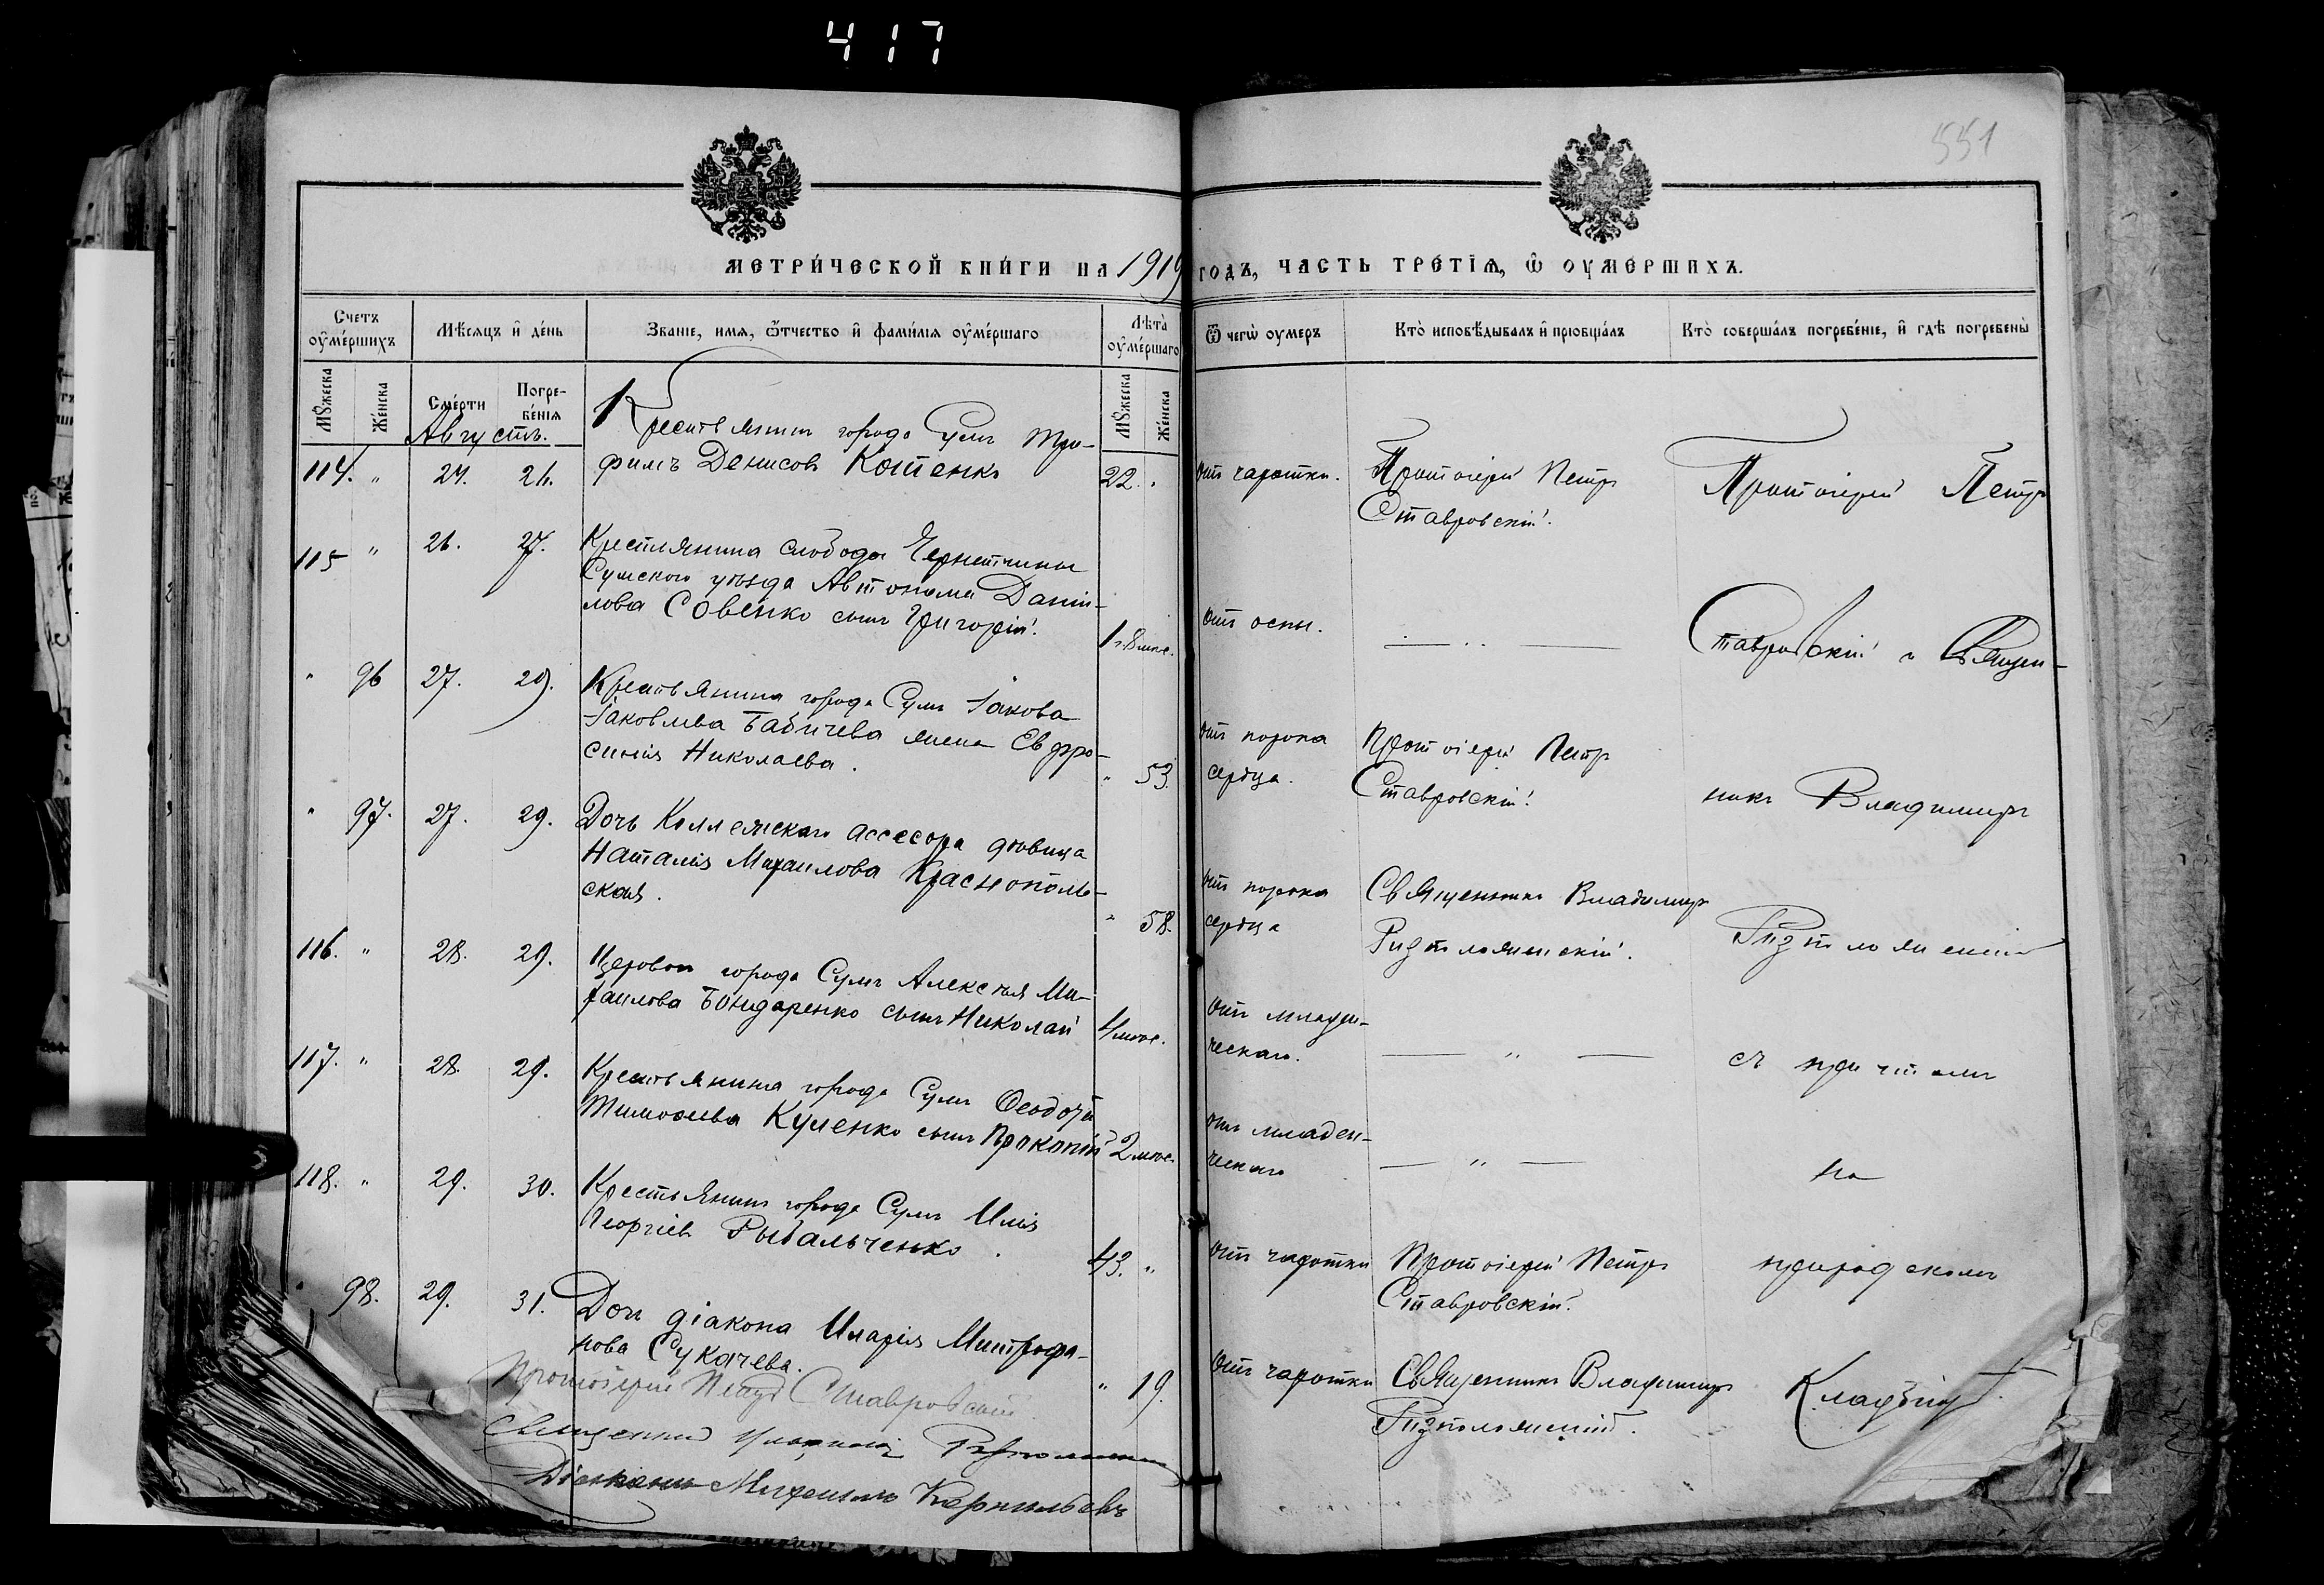 417
551
МЕТРИ́ЧЕСКОЙ КНИ́ГИ НА 1919 ГОДЪ, ЧАСТЬ ТРЕ́ТІѦ, Ѽ ОУМЕРШИХЪ.
Счетъ оумершихъ
Мѣсяцъ и день
Званіе, имя, отчество и фамилія оумершаго
Лѣта оумершаго
Ѿ чегѡ оумеръ
Кто исповѣдывалъ и пріобщалъ
Кто совершалъ погребеніе, и гдѣ погребены
Мꙋжеска
Женска
Смерти
Погребенія
Мꙋжеска
Женска
Августъ.
Крестьянинъ города Сумъ Тро-
114. " 24. 26. фимъ Денисовъ Котенко 22. "
отъ чахотки. Протоіерей Петръ
Ставровскій.
Протоіерей Петръ
115 " 26. 27. Крестьянина слободы Чернетчины
Сумскаго уѣзда Автонома Данiи-
лова Совенко сынъ Григорій. 1 г. 8 мѣс.
отъ оспы. — " —
Ставровскій и Священ-
" 96 27. 29. Крестьянина города Сумъ Іакова
Іаковлева Бабичева жена Евфро-
синія Николаева. " 53.
отъ порока Протоіерей Петръ
сердца. Ставровскій.
никъ Владиміръ
" 97. 27. 29. Дочь Коллежскаго ассесора дѣвица
Наталія Михаилова Краснополь-
ская. " 58.
отъ порока Священникъ Владиміръ
сердца
116. " 28. 29. города Сумъ Алексѣя Ми-
хаилова Бондаренко сынъ Николай 4 мѣс.
отъ младен-
ческаго. — " —
съ причтомъ
117. " 28. 29. Крестьянина города Сумъ Ѳеодора
Тимоѳеева Куценко сынъ Прокопій 2 мѣс.
отъ младен-
ческаго — " —
на
118. " 29. 30. Крестьянинъ города Сумъ Илія
Георгіевъ Рыбальченко. 43. "
отъ чахотки Протоіерей Петръ
Ставровскій.
приходскомъ
" 98. 29. 31. Дочь діакона Иларія Митрофа-
нова Сукачева. " 19.
отъ чахотки Священникъ Владиміръ
Кладбищѣ.
Протоіерей Петръ Ставровскій
Священникъ
Діаконъ Михаилъ Корнильевъ